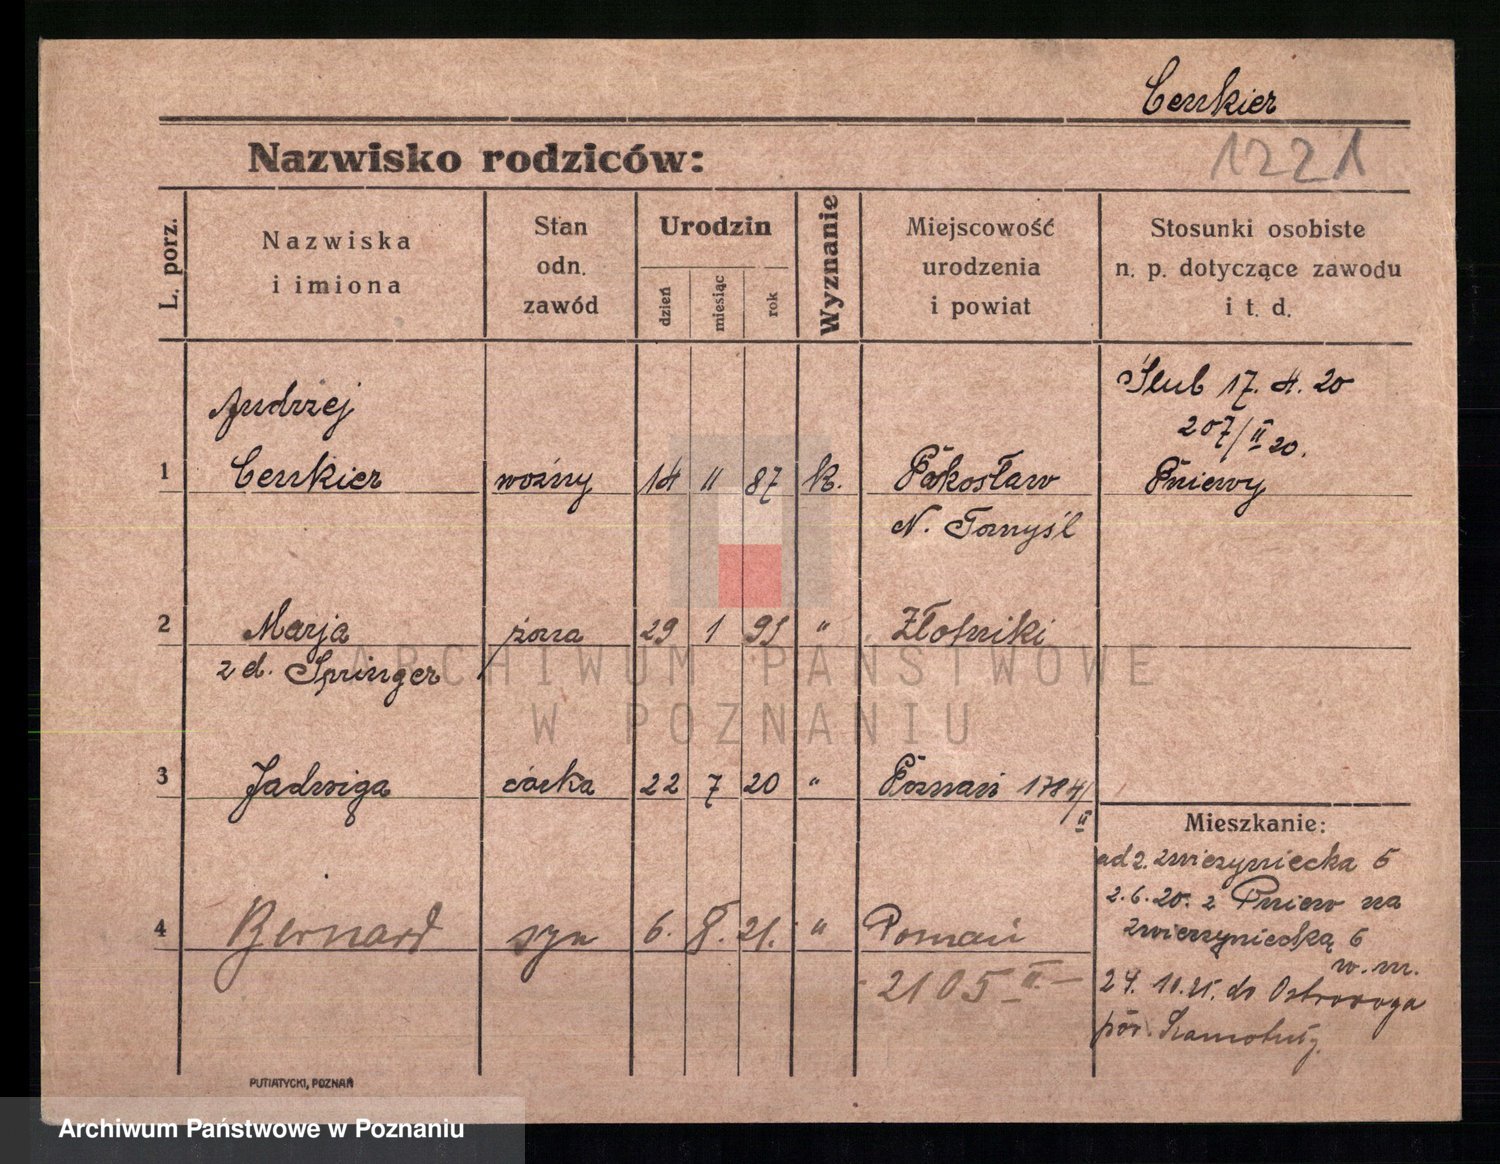 Cenkier
Nazwisko rodziców:
1221
L. porz.
Nazwiska
i imiona
Stan
odn.
zawód
Urodzin
dzień
miesiąc
rok
Wyznanie
Miejscowość
urodzenia
i powiat
Stosunki osobiste
n. p. dotyczące zawodu
i t. d.
Ślub 17. 4. 20
207/II 20.
Pniewy
Andrzej
1 Cenkier woźny 14 11 87 k. Pakosław
N. Tomyśl
2 Marja żona 29 1 95 " Złotniki
z d. Springer
3 Jadwiga córka 22 7 20 " Poznań 1784/
II
4 Bernard syn 6. X. 21. " Poznań
- 2105 II. -
Mieszkanie:
Zwierzyniecka 6
2.6.20. z Pniew na
Zwierzyniecką 6
w. m.
24. 10. 21. do Ostroroga
pow. Szamotuły
PUTIATYCKI, POZNAŃ
ARCHIWUM PAŃSTWOWE
W POZNANIU
Archiwum Państwowe w Poznaniu